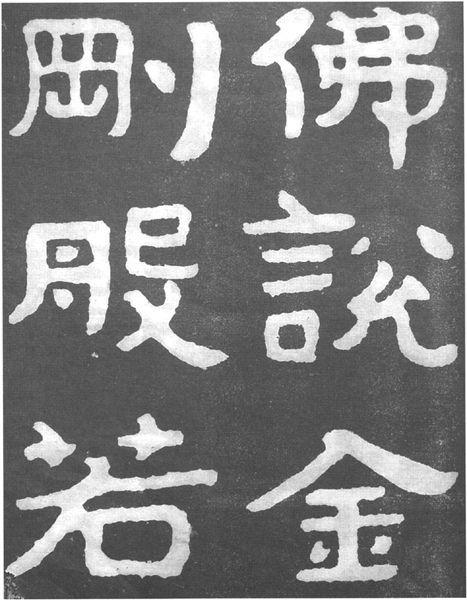 佛說金
剛般若